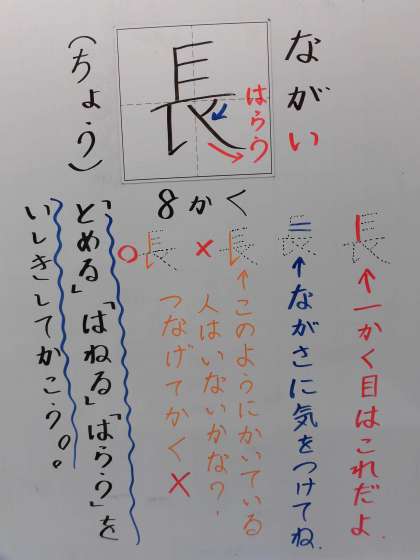 ながい
長
はらう
(ちょう)
8かく
長
↑一かく目はこれだよ.
長
↑ながさに気をつけてね.
×長
↑このようにかいている
人はいないかな?.
つなげてかく×
○長
「とめる」「はねる」「はらう」を
いしきしてかこう。。